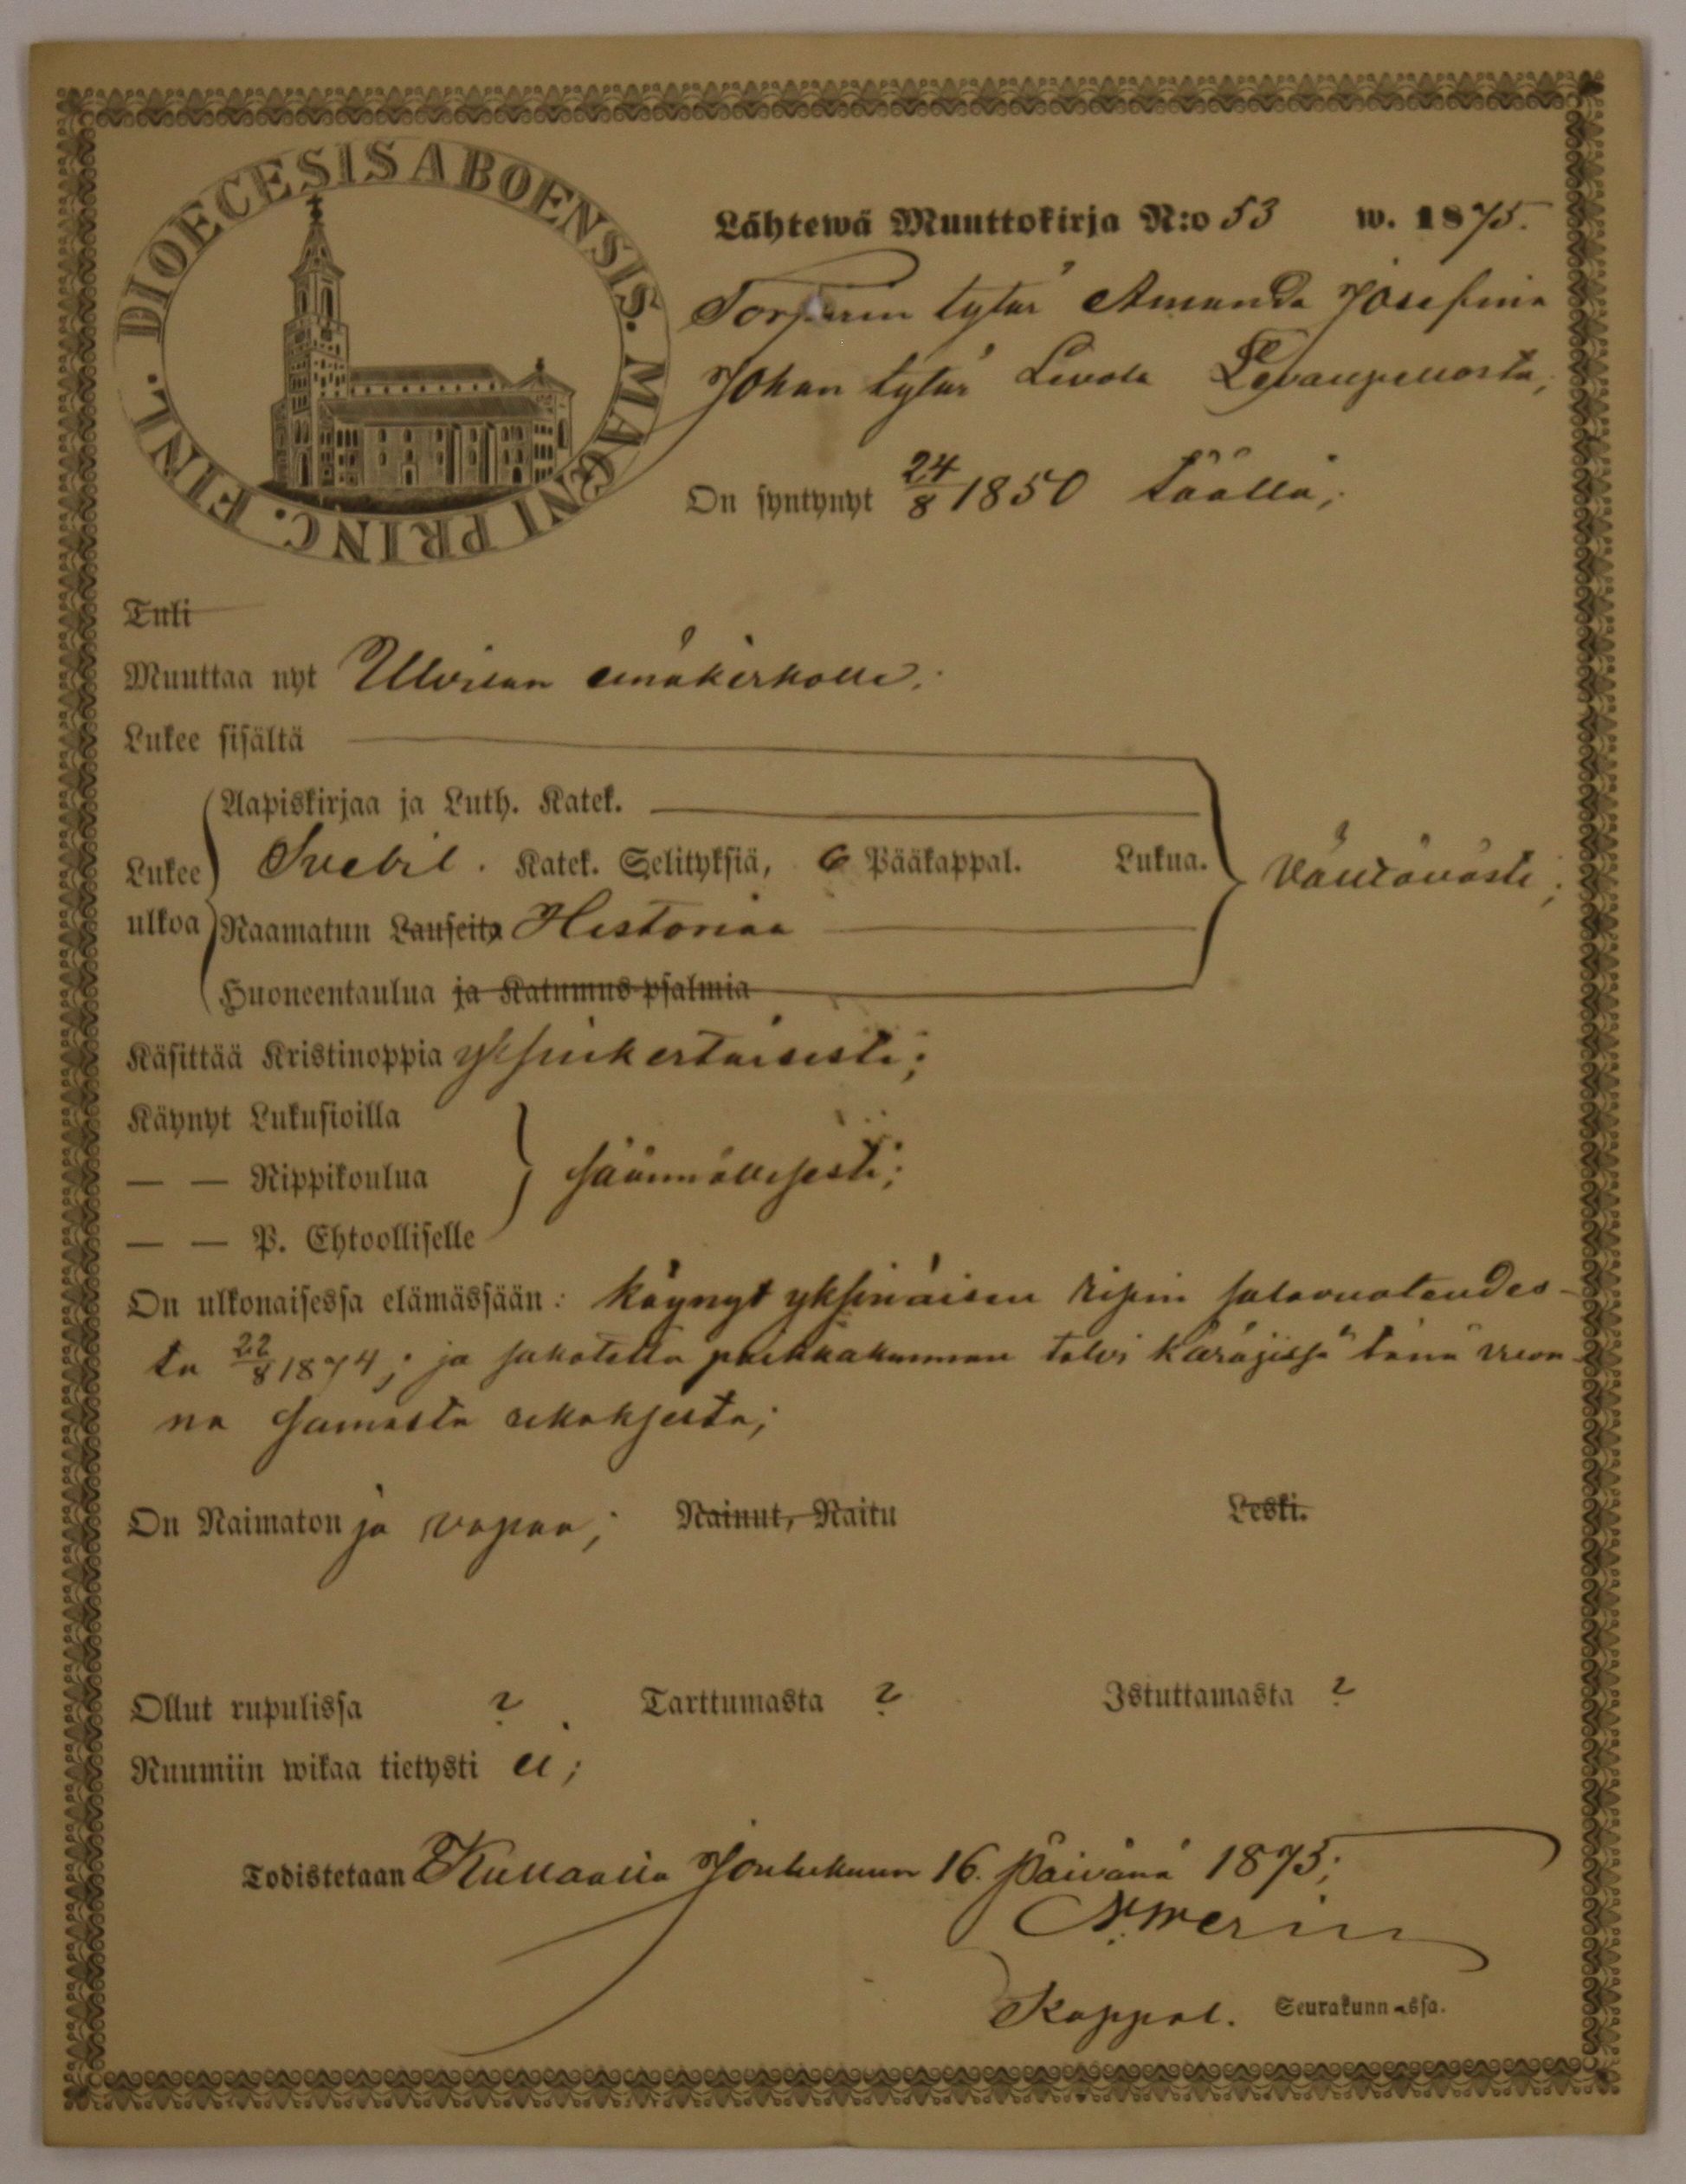 DIOECESIS ABOENSIS. MAGNI PRINC. FINL.
Lähtewä Muuttokirja N:o 53 w. 1875.
Torparin tytär Amanda Josefina
Johan tytär Levola Levanpellosta,
On syntynyt 24/8 1850 täällä;
Tuli
Muuttaa nyt Ulvilan emäkirkolle;
Lukee sisältä
Aapiskirjaa ja Luth. Katek.
Lukee Svebil. Katek. Selityksiä, 6 Pääkappal. Lukua. Välttävästi;
ulkoa Raamatun Lauseita Historiaa
Huoneentaulua ja Katumus-psalmia
Käsittää Kristinoppia yksinkertaisesti;
Käynyt Lukusioilla
— — Rippikoulua säännöllisesti;
— — P. Ehtoolliselle
On ulkonaisessa elämässään: käynyt yksinäisen ripin salavuoteudes-
ta 22/8 1874; ja sakotettu paikkakunnan talvi käräjissä tänä vuon-
na samasta rikoksesta;
On Naimaton ja vapaa; Nainut, Naitu Leski.
Ollut rupulissa ? Tarttumasta ? Istuttamasta ?
Ruumiin wikaa tietysti ei;
Todistetaan Kullaalla Joulukuun 16. päivänä 1875;
Kappal. Seurakunnassa.